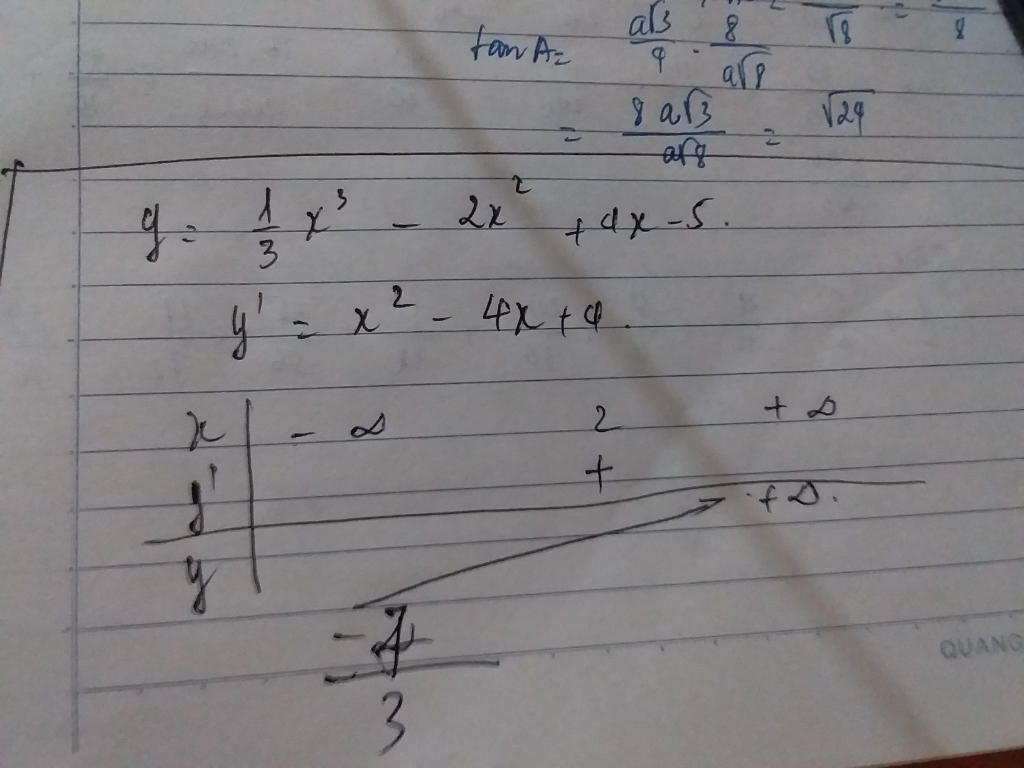 tan A = a√3/4 · 8/a√8 √8 = 8
= 8a√3/a√8 = √24
y = 1/3 x³ - 2x² + 4x - 5.
y' = x² - 4x + 4.
x - ∞ 2 + ∞
y' +
+ ∞.
y
3
QUANG